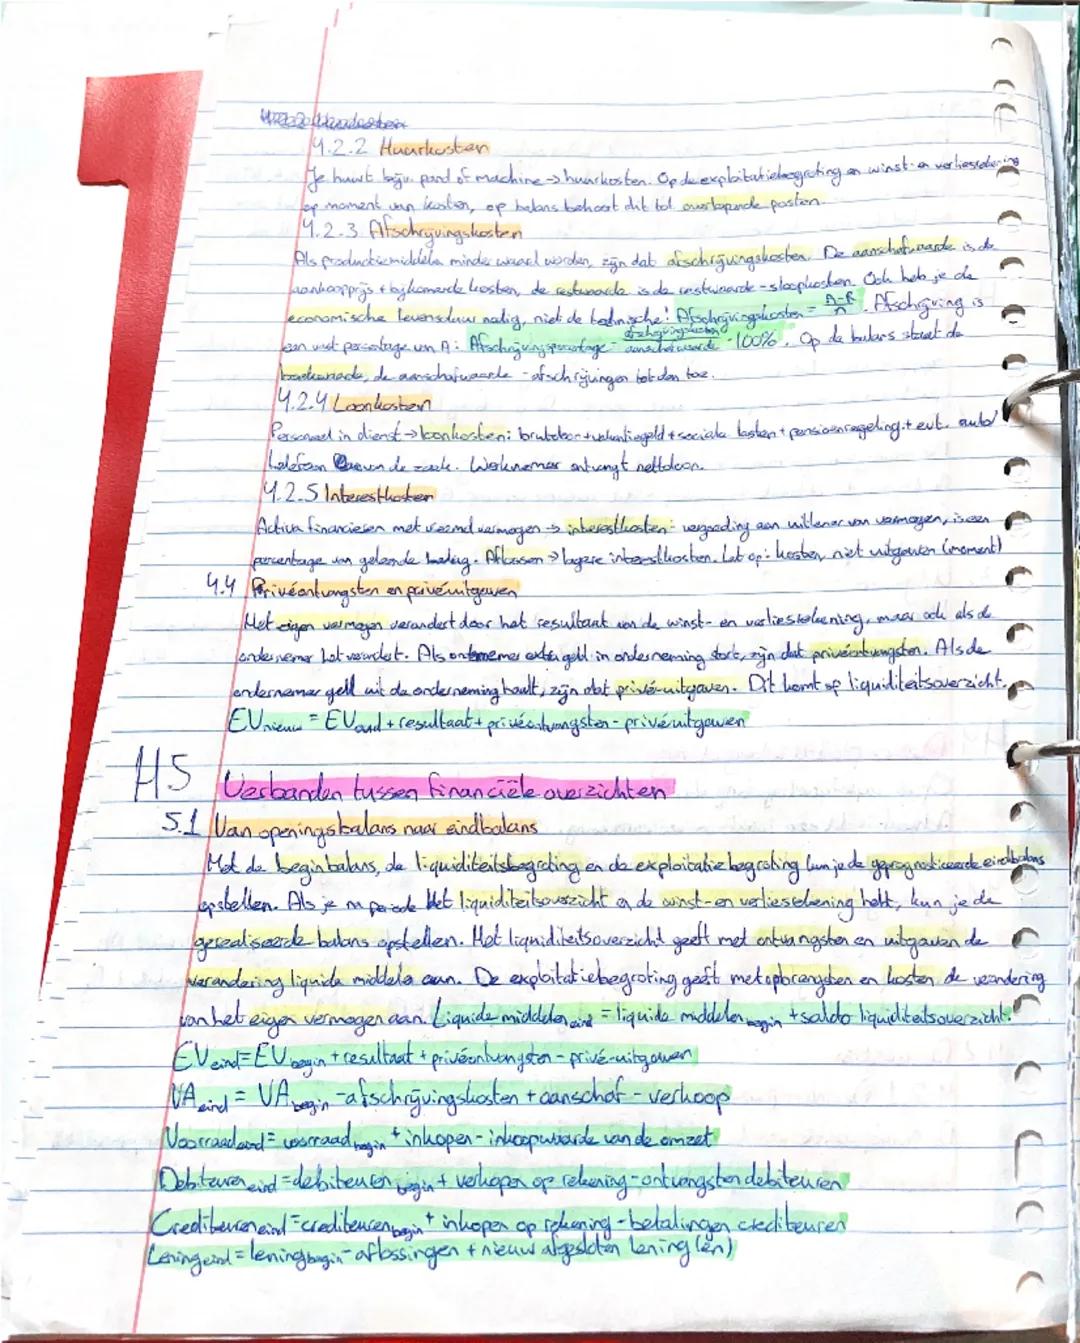 4.2.2 Huurkosten
Je huurt bijv. pand of machine → huurkosten. Op de exploitatiebegroting en winst- en verliesrekening
op moment van kosten, op balans behoort dit tot overlopende posten.
4.2.3 Afschrijvingskosten
Als productiemiddelen minder waard worden, zijn dat afschrijvingskosten. De aanschafwaarde is de
aankoopprijs + bijkomende kosten, de restwaarde is de restwaarde - sloopkosten. Ook heb je de
economische levensduur nodig, niet de technische! Afschrijvingskosten = A-R / n. Afschrijving is
een vast percentage van A: Afschrijvingspercentage = afschrijvingskosten / aanschafwaarde · 100%. Op de balans staat de
boekwaarde, de aanschafwaarde - afschrijvingen tot dan toe.
4.2.4 Loonkosten
Personeel in dienst → loonkosten: brutoloon + vakantiegeld + sociale lasten + pensioenregeling + evt. auto/
telefoon van de zaak. Werknemer ontvangt nettoloon.
4.2.5 Interestkosten
Activa financieren met vreemd vermogen → interestkosten: vergoeding aan uitlener van vermogen, is een
percentage van geleende bedrag. Aflossen → lagere interestkosten. Let op: kosten, niet uitgaven (moment)
4.4 Privéontvangsten en privéuitgaven
Het eigen vermogen verandert door het resultaat van de winst- en verliesrekening, maar ook als de
ondernemer het verandert. Als ondernemer extra geld in onderneming stort, zijn dat privéontvangsten. Als de
ondernemer geld uit de onderneming haalt, zijn dat privé-uitgaven. Dit komt op liquiditeitsoverzicht.
EVnieuw = EVoud + resultaat + privéontvangsten - privéuitgaven
H5 Verbanden tussen financiële overzichten
5.1 Van openingsbalans naar eindbalans
Met de beginbalans, de liquiditeitsbegroting en de exploitatiebegroting kun je de geprognosticeerde eindbalans
opstellen. Als je na periode het liquiditeitsoverzicht en de winst- en verliesrekening hebt, kun je de
gerealiseerde balans opstellen. Het liquiditeitsoverzicht geeft met ontvangsten en uitgaven de
verandering liquide middelen aan. De exploitatiebegroting geeft met opbrengsten en kosten de verandering
van het eigen vermogen aan. Liquide middelen eind = liquide middelen begin + saldo liquiditeitsoverzicht.
EVeind = EVbegin + resultaat + privéontvangsten - privé-uitgaven
VAeind = VAbegin - afschrijvingskosten + aanschaf - verkoop
Voorraadeind = voorraad begin + inkopen - inkoopwaarde van de omzet
Debiteuren eind = debiteuren begin + verkopen op rekening - ontvangsten debiteuren
Crediteuren eind = crediteuren begin + inkopen op rekening - betalingen crediteuren
Lening eind = lening begin - aflossingen + nieuw afgesloten lening(en)